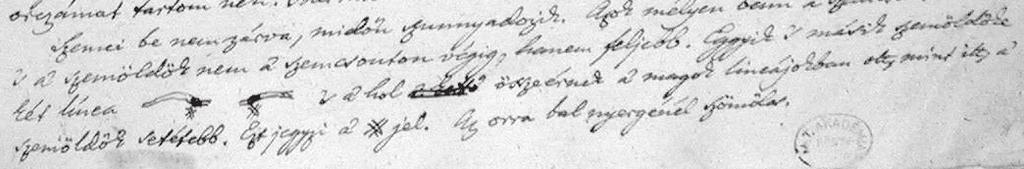 orczámat tartom nem.
Szemei be nem zárva, midőn szunnyadozik. Azok mélyen benn a
's a szemöldök nem a szemcsonton végig, hanem feljebb. Eggyik 's másik szemöldök
két línea 's a hol összeérnek a magok lineájokban ott, mint itt, a
szemöldök setétebb. Ezt jegyzi a jel. Az orra bal nyergénél szömölcs.
AKADÉMIA